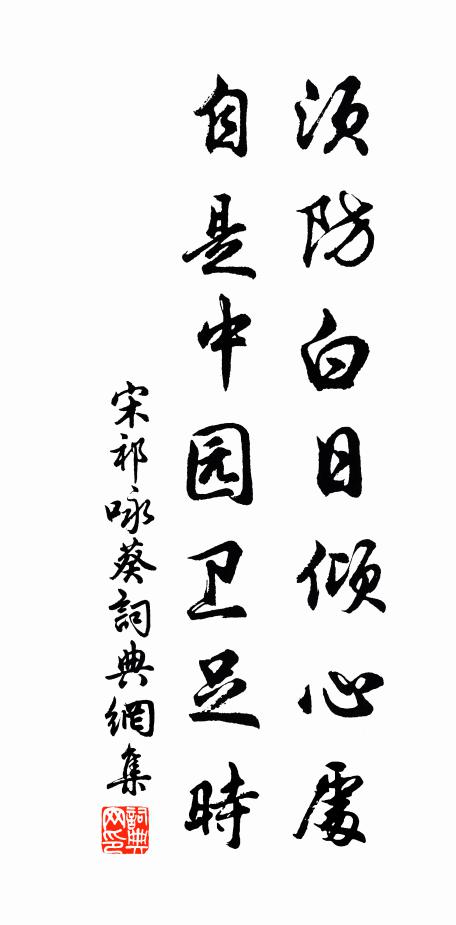 须防白日倾心處
自是中园卫足時
宋祁咏葵詞典網集
詞典網印